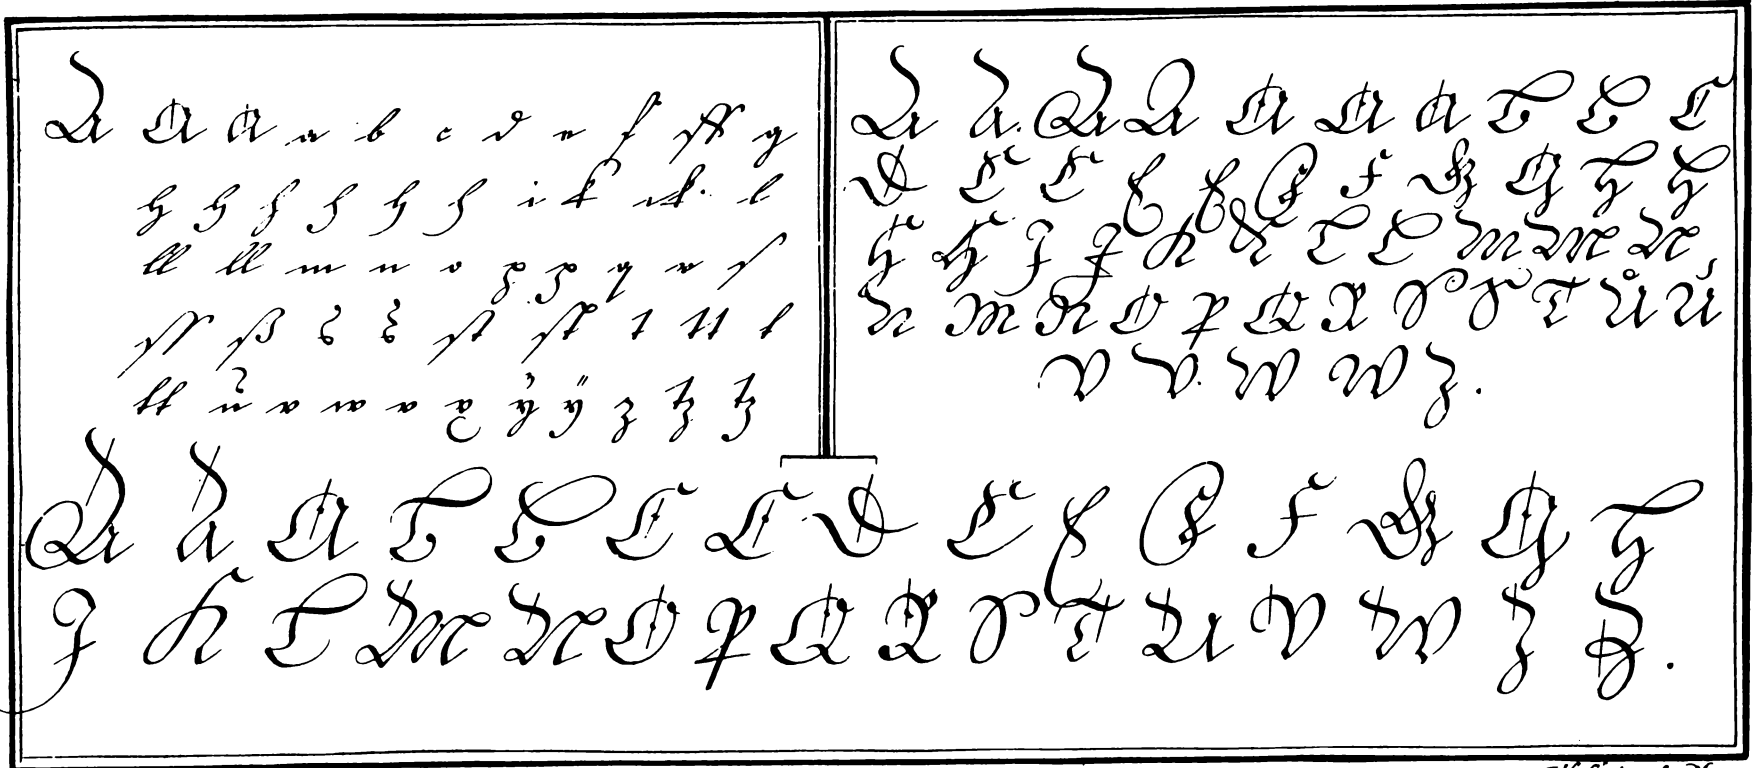 A A A a b c d e f ff g
h h h h h h i k ck. l
ll ll m n o p p q r s
ss ß s s st st t tt t
tt u v w x x ÿ ÿ z tz tz
A A. A A A A A B B C
D E E E E E F G G H H
H H J J K K L L M M N
N M N O P Q R S S T U U
V V. W W Z.
A A A B B C C D E E E F G G H
J K L M N O P Q R S T U V W Z Z.